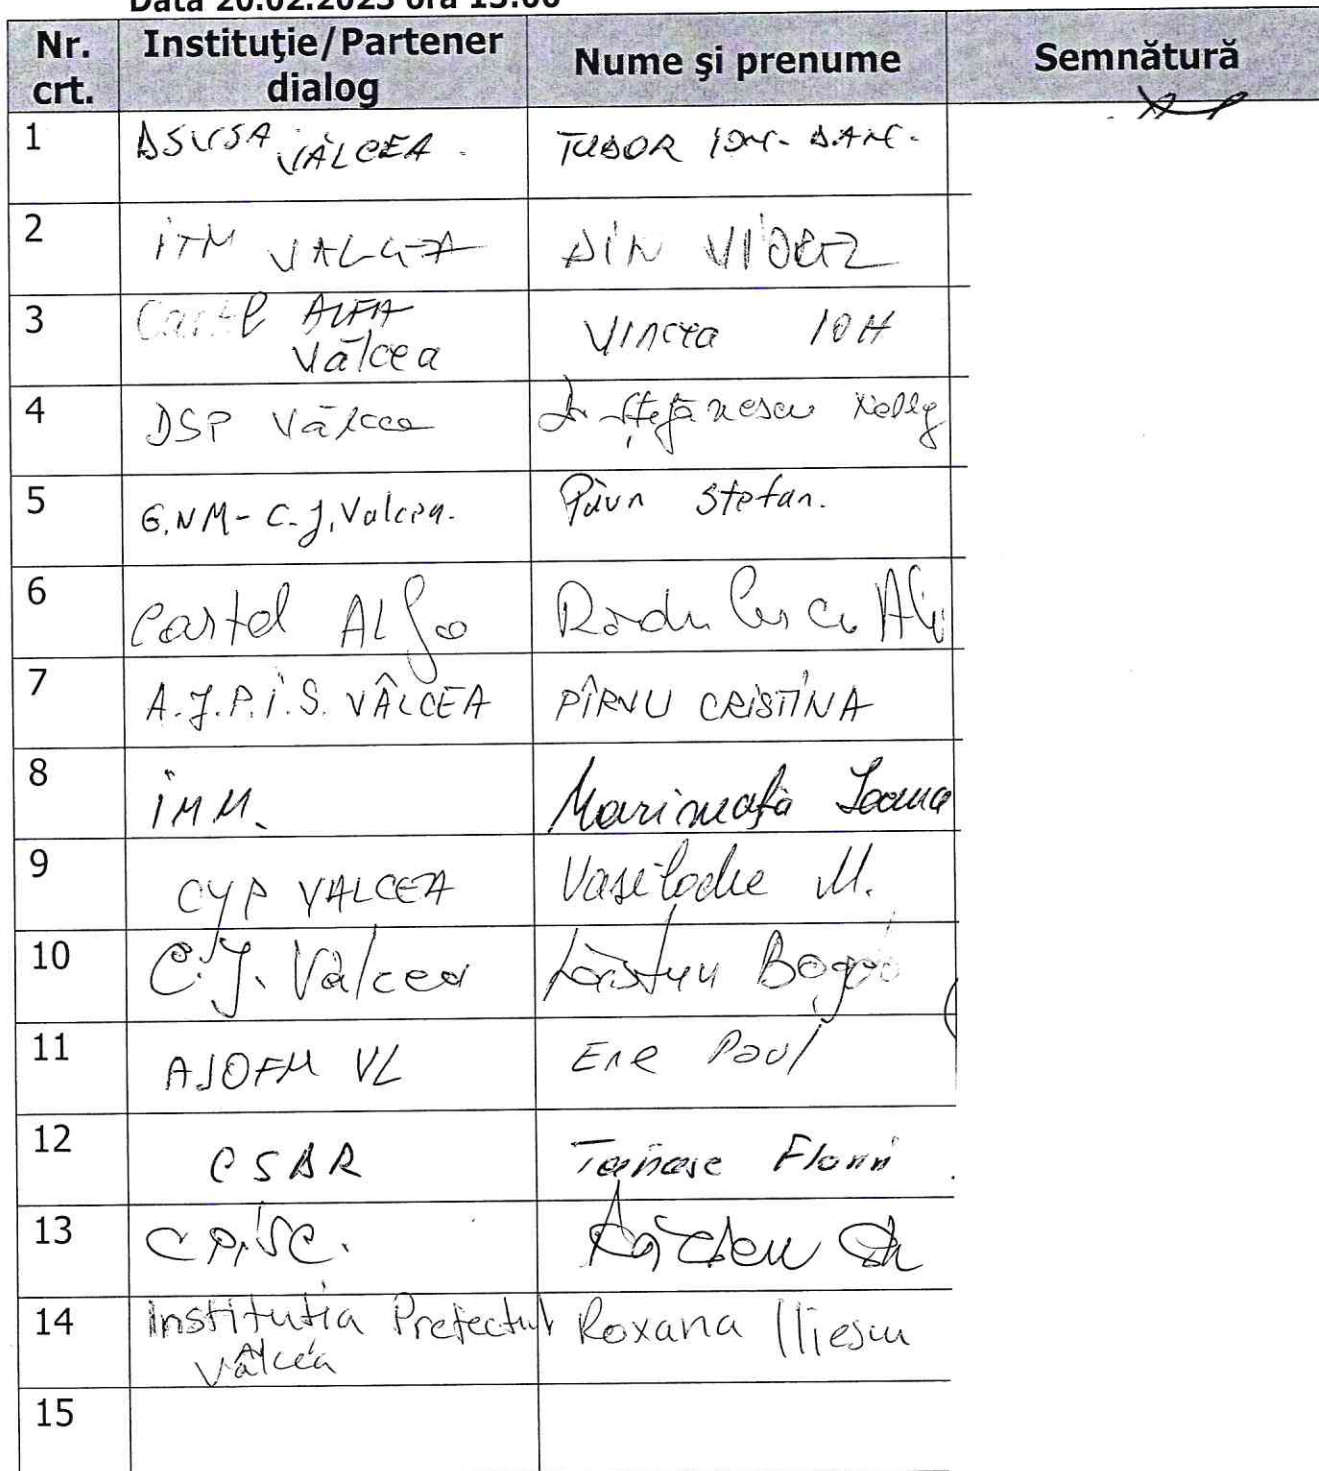 Data 20.02.2023 ora 13.00
Nr. crt. Instituţie/Partener dialog Nume şi prenume Semnătură
1 DSVSA VÂLCEA. TUDOR ION-DAN.
2 ITM VALCEA DIN VIOREL
3 Cartel ALFA Vâlcea Vincea ION
4 DSP Vâlcea Dr Ștefănescu Nelly
5 G.NM-C.J.Valcea. Păun Stefan.
6 Cartel ALFa Radulescu Ali
7 A.J.P.I.S. VÂLCEA PÎRVU CRISTINA
8 IMM. Marineață Ioana
9 VALCEA Vasilache M.
10 C.J. Valcea Lăstun
11 AJOFM VL Ene Paul
12 CSDR Tanase Florin
13
14 Institutia Prefectul Vâlcea Roxana Iliescu
15